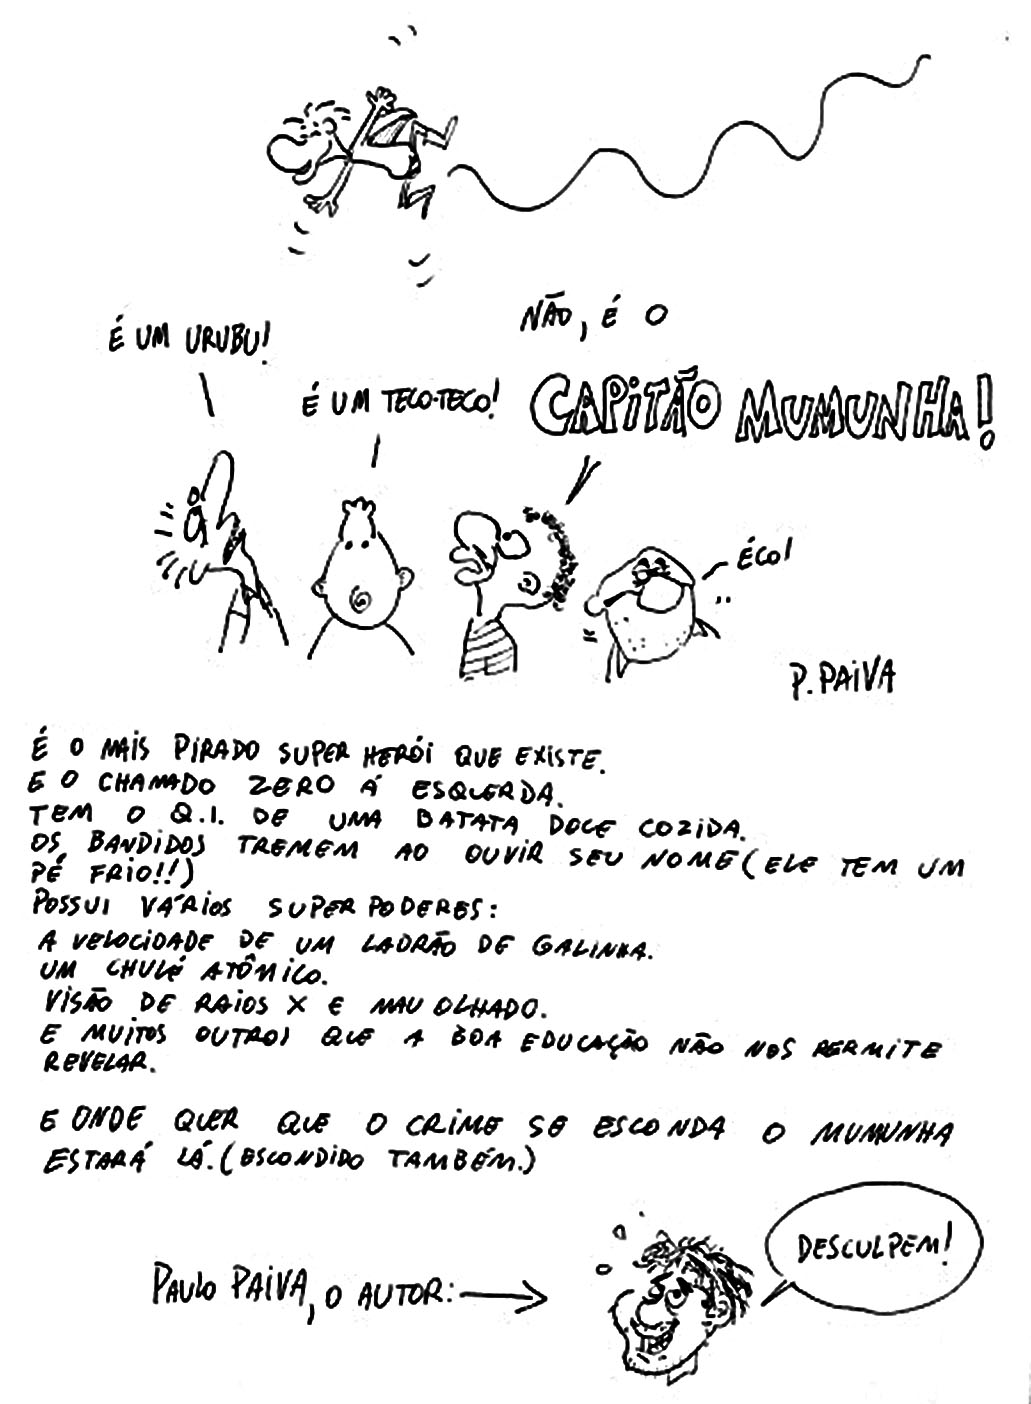 É UM URUBU!
É UM TECO-TECO!
NÃO, É O
CAPITÃO MUMUNHA!
ÉCO!
P. PAIVA
É O MAIS PIRADO SUPER HERÓI QUE EXISTE.
E O CHAMADO ZERO Á ESQUERDA.
TEM O Q.I. DE UMA BATATA DOCE COZIDA.
OS BANDIDOS TREMEM AO OUVIR SEU NOME (ELE TEM UM
PÉ FRIO!!)
POSSUI VÁRIOS SUPER PODERES:
A VELOCIDADE DE UM LADRÃO DE GALINHA.
UM CHULÉ ATÔMICO.
VISÃO DE RAIOS X E MAU OLHADO.
E MUITOS OUTROS QUE A BOA EDUCAÇÃO NÃO NOS PERMITE
REVELAR.
E ONDE QUER QUE O CRIME SE ESCONDA O MUMUNHA
ESTARÁ LÁ. (ESCONDIDO TAMBÉM.)
PAULO PAIVA, O AUTOR:
DESCULPEM!